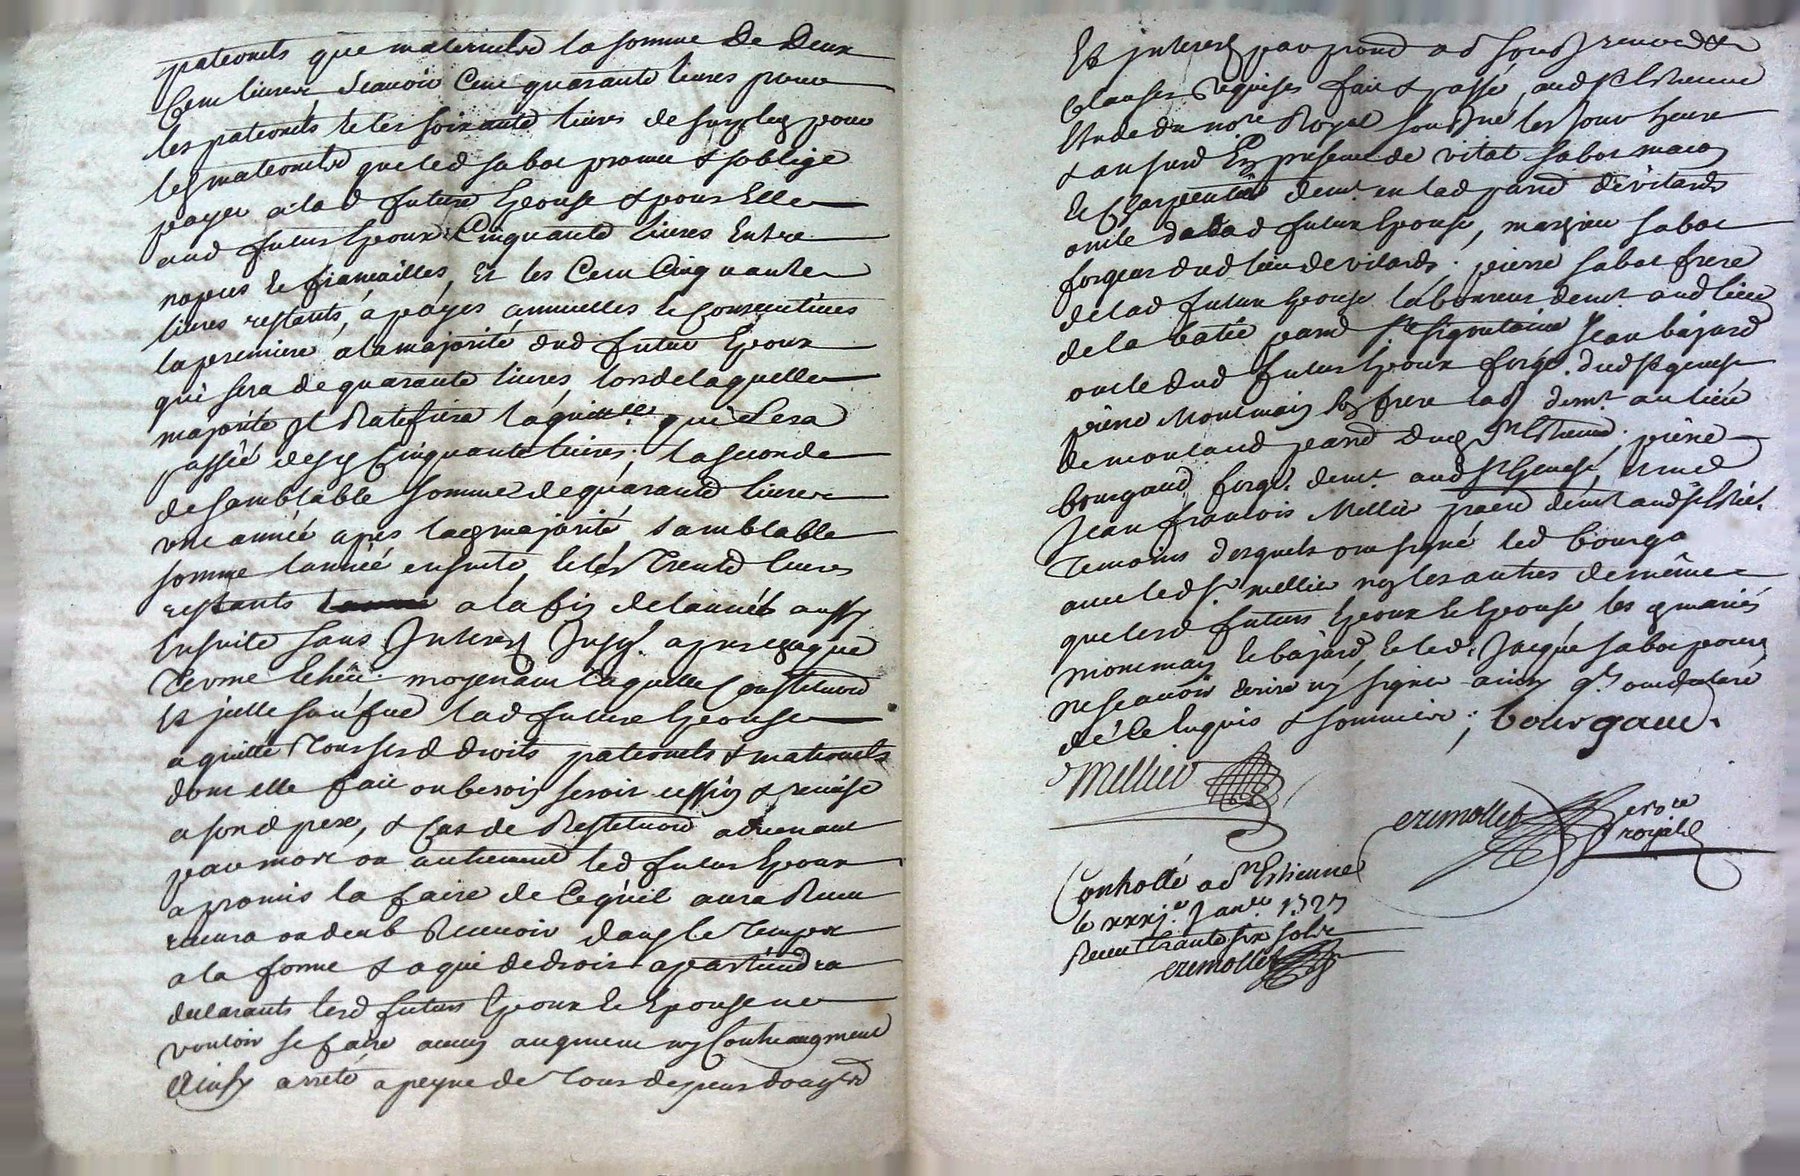 paternels que maternels la somme de deux
Cens livres scavoir Cent quarante livres pour
les paternels et les soixante livres de surplus pour
les maternels que led sabot promet & soblige
payer a lad future Epouse & pour Elle
aud futur Epoux Cinquante livres Entre
nopces et fiancailles, Et les Cent Cinquante
livres restants, a payes annuelles et Consecutives
la premiere a la majorité dud futur Epoux
qui sera de quarante livres lors de laquelle
majorité Il Ratifiera la quittce. qui sera
passée desd Cinquante livres; la seconde
de semblable somme de quarante livres
une année apres lad majorité, samblable
somme lannée ensuite, et les Trente livres
restants a la fin de lannée aussy
Ensuite sans Interest Jusq. apres chaque
Terme Echeu. moyenant laquelle Constitution
Et jcelle sauf que lad future Epouse
a quitté Tous sesd droits paternels & maternels
dont elle fait ou besoin seroit cession & remise
a sond pere, & Cas de Restitution advenant
par mort ou autrement led futur Epoux
a promis la faire de Cequ'il aura Receu
ou deub Recevoir dans le Temps
a la forme & a qui de droit apartiendra
declarants lesd futurs Epoux et Epouse ne
vouloir se faire aucun augment ny Contreaugment
Ainsy arresté a peyne de Tous despens domages
Et Interests par promes ad soubs renon&
Clauses Requises fait & passé, aud St Estienne
Etude du nore Royal soubsne les Jour heure
& an susd En presence de vital sabot macon
Et Charpentier demt. en lad parr d'evilards
oncle de lad future Epouse, mathieu sabot
forgeur dud lieu devilards; pierre sabot frere
de lad future Epouse laboureur demt aud lieu
de la batie parr St sigoulaine Jean bajard
oncle dud futur Epoux forgr. dud St genest
pierre Montmain son frere lad demt. au lieu
de montaud parr dud St Estienne, pierre
bourgaud forgr. demt. aud St Genest, et me
Jean francois Mellier praen demt aud St Estien.
Temoins desquels ont signé led bourga
avec led sr. mellier ny les autres de même
que lesd futurs Epoux et Epouse les mariés
montmain et bajard, et led. Jacque sabot pour
ne scavoir ecrire ny signer ainsy qls. ont declaré
de ce Enquis & sommés; bourgaud.
Mellier
cremollet nore
royal
Conttollé a St Estienne
le xxxje. Janer. 1727
Receu Trante six sols
cremollet